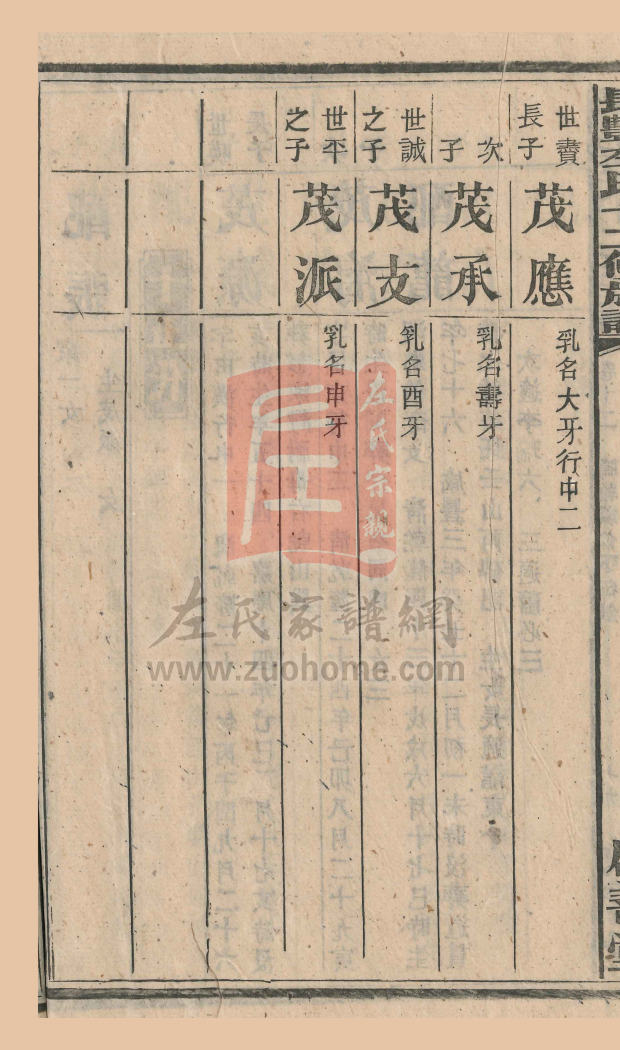 世賚
長子
茂應
乳名大牙行中二
次
子
茂承
乳名壽牙
世誠
之子
茂支
乳名酉牙
世平
之子
茂派
乳名申牙
左氏宗親
左氏家譜網
www.zuohome.com